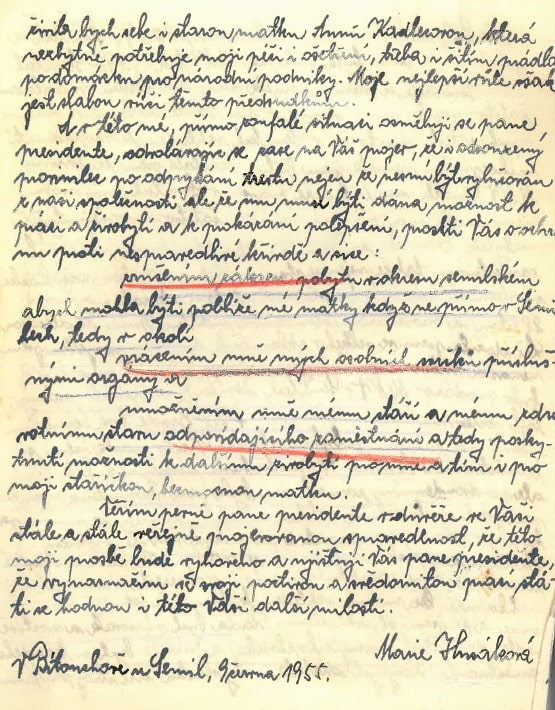 živila bych sebe i starou matku Annu Kadlecovou, která
nezbytně potřebuje moji péči i ošetření, třeba i šitím prádla
po domácku pro národní podniky. Moje nejlepší vůle však
jest slabou vůči těmto předsudkům.
A v této mé, přímo zoufalé situaci osměluji se pane
presidente, odvolávajíc se zase na Váš projev, že i odsouzený
provinilec po odpykání trestu nejen že nesmí být vyřazován
z naší společnosti ale že mu musí býti dána možnost k
práci a živobytí a k pokárání polepšení, prositi Vás o ochra
nu proti nespravedlivé křivdě a sice:
zrušením zákazu pobytu v okrese semilském
abych mohla býti poblíže mé matky když ne přímo v Semi
lech, tedy v okolí
vrácením mně mých osobních příslu-
nými orgány a
umožněním mně mému stáří a mému zdra
votnímu stavu odpovídajícího zaměstnání a tedy posky-
tnutí možnosti k dalšímu živobytí pro mne a tím i pro
moji stařičkou, bezmocnou matku.
Věřím pevně pane presidente v důvěře ve Vaši
stále a stále veřejně projevovanou spravedlnost, že této
mojí prosbě bude vyhověno a ujišťuji Vás pane presidente,
že vynasnažím se svojí poctivou a svědomitou prací stá-
ti se hodnou i této Vaší další milosti.
Marie
V Bítouchově u Semil, 9 června 1955.